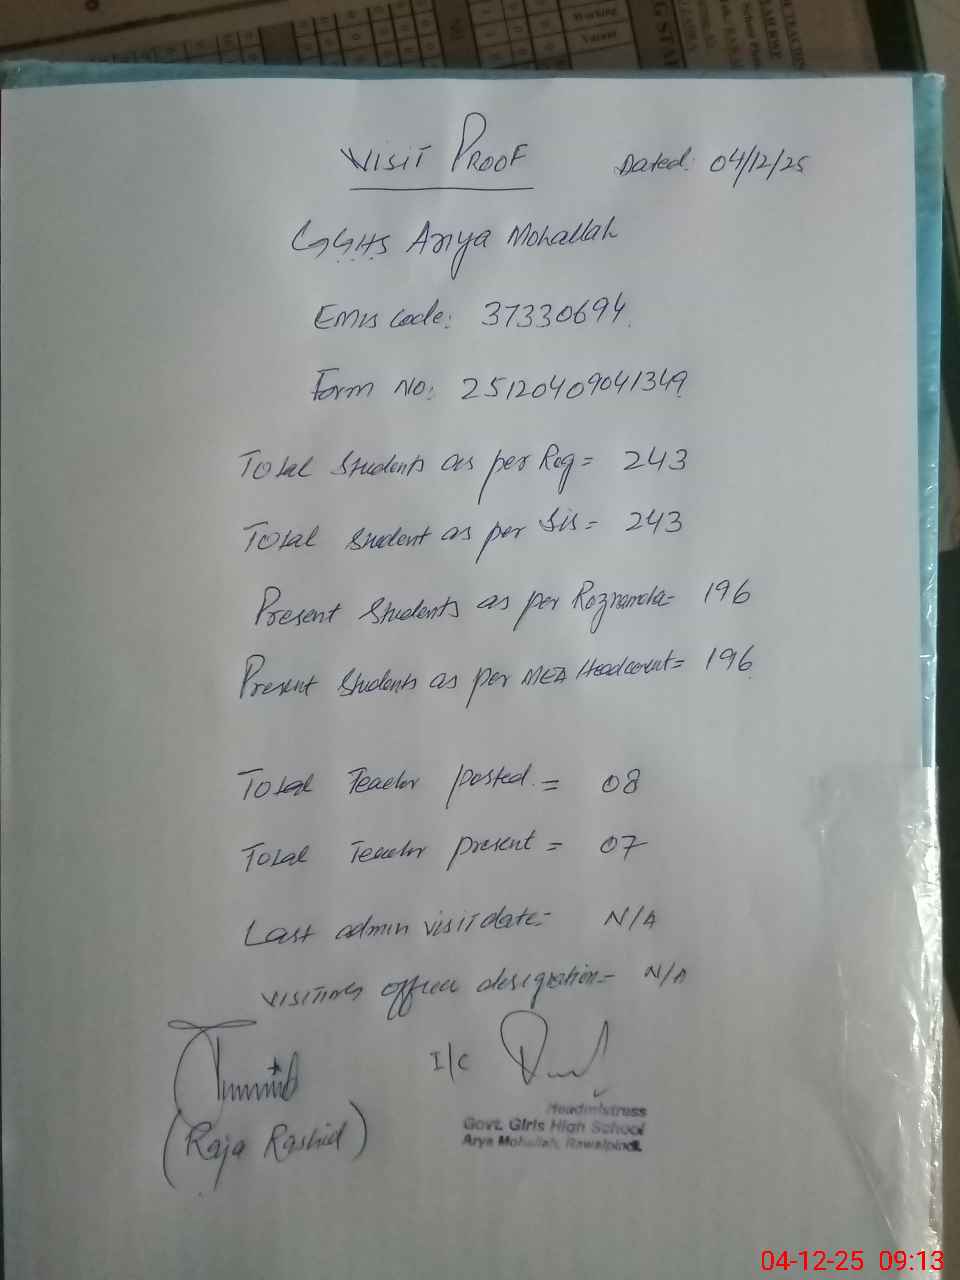 VISIT PROOF Dated: 04/12/25
GGHS Ariya Mohallah
EMIS Code: 37330694.
Form NO: 25120409041349
Total Students as per Reg = 243
Total Student as per Sis = 243
Present Students as per Roznamcha = 196
Present Students as per MEA Headcount = 196
Total Teacher posted = 08
Total Teacher present = 07
Last admin visit date = N/A
VISITING officer designation = N/A
I/C
Headmistress
Govt. Girls High School
Arya Mohallah, Rawalpindi.
(Raja Rashid)
Working
Vacant
04-12-25 09:13